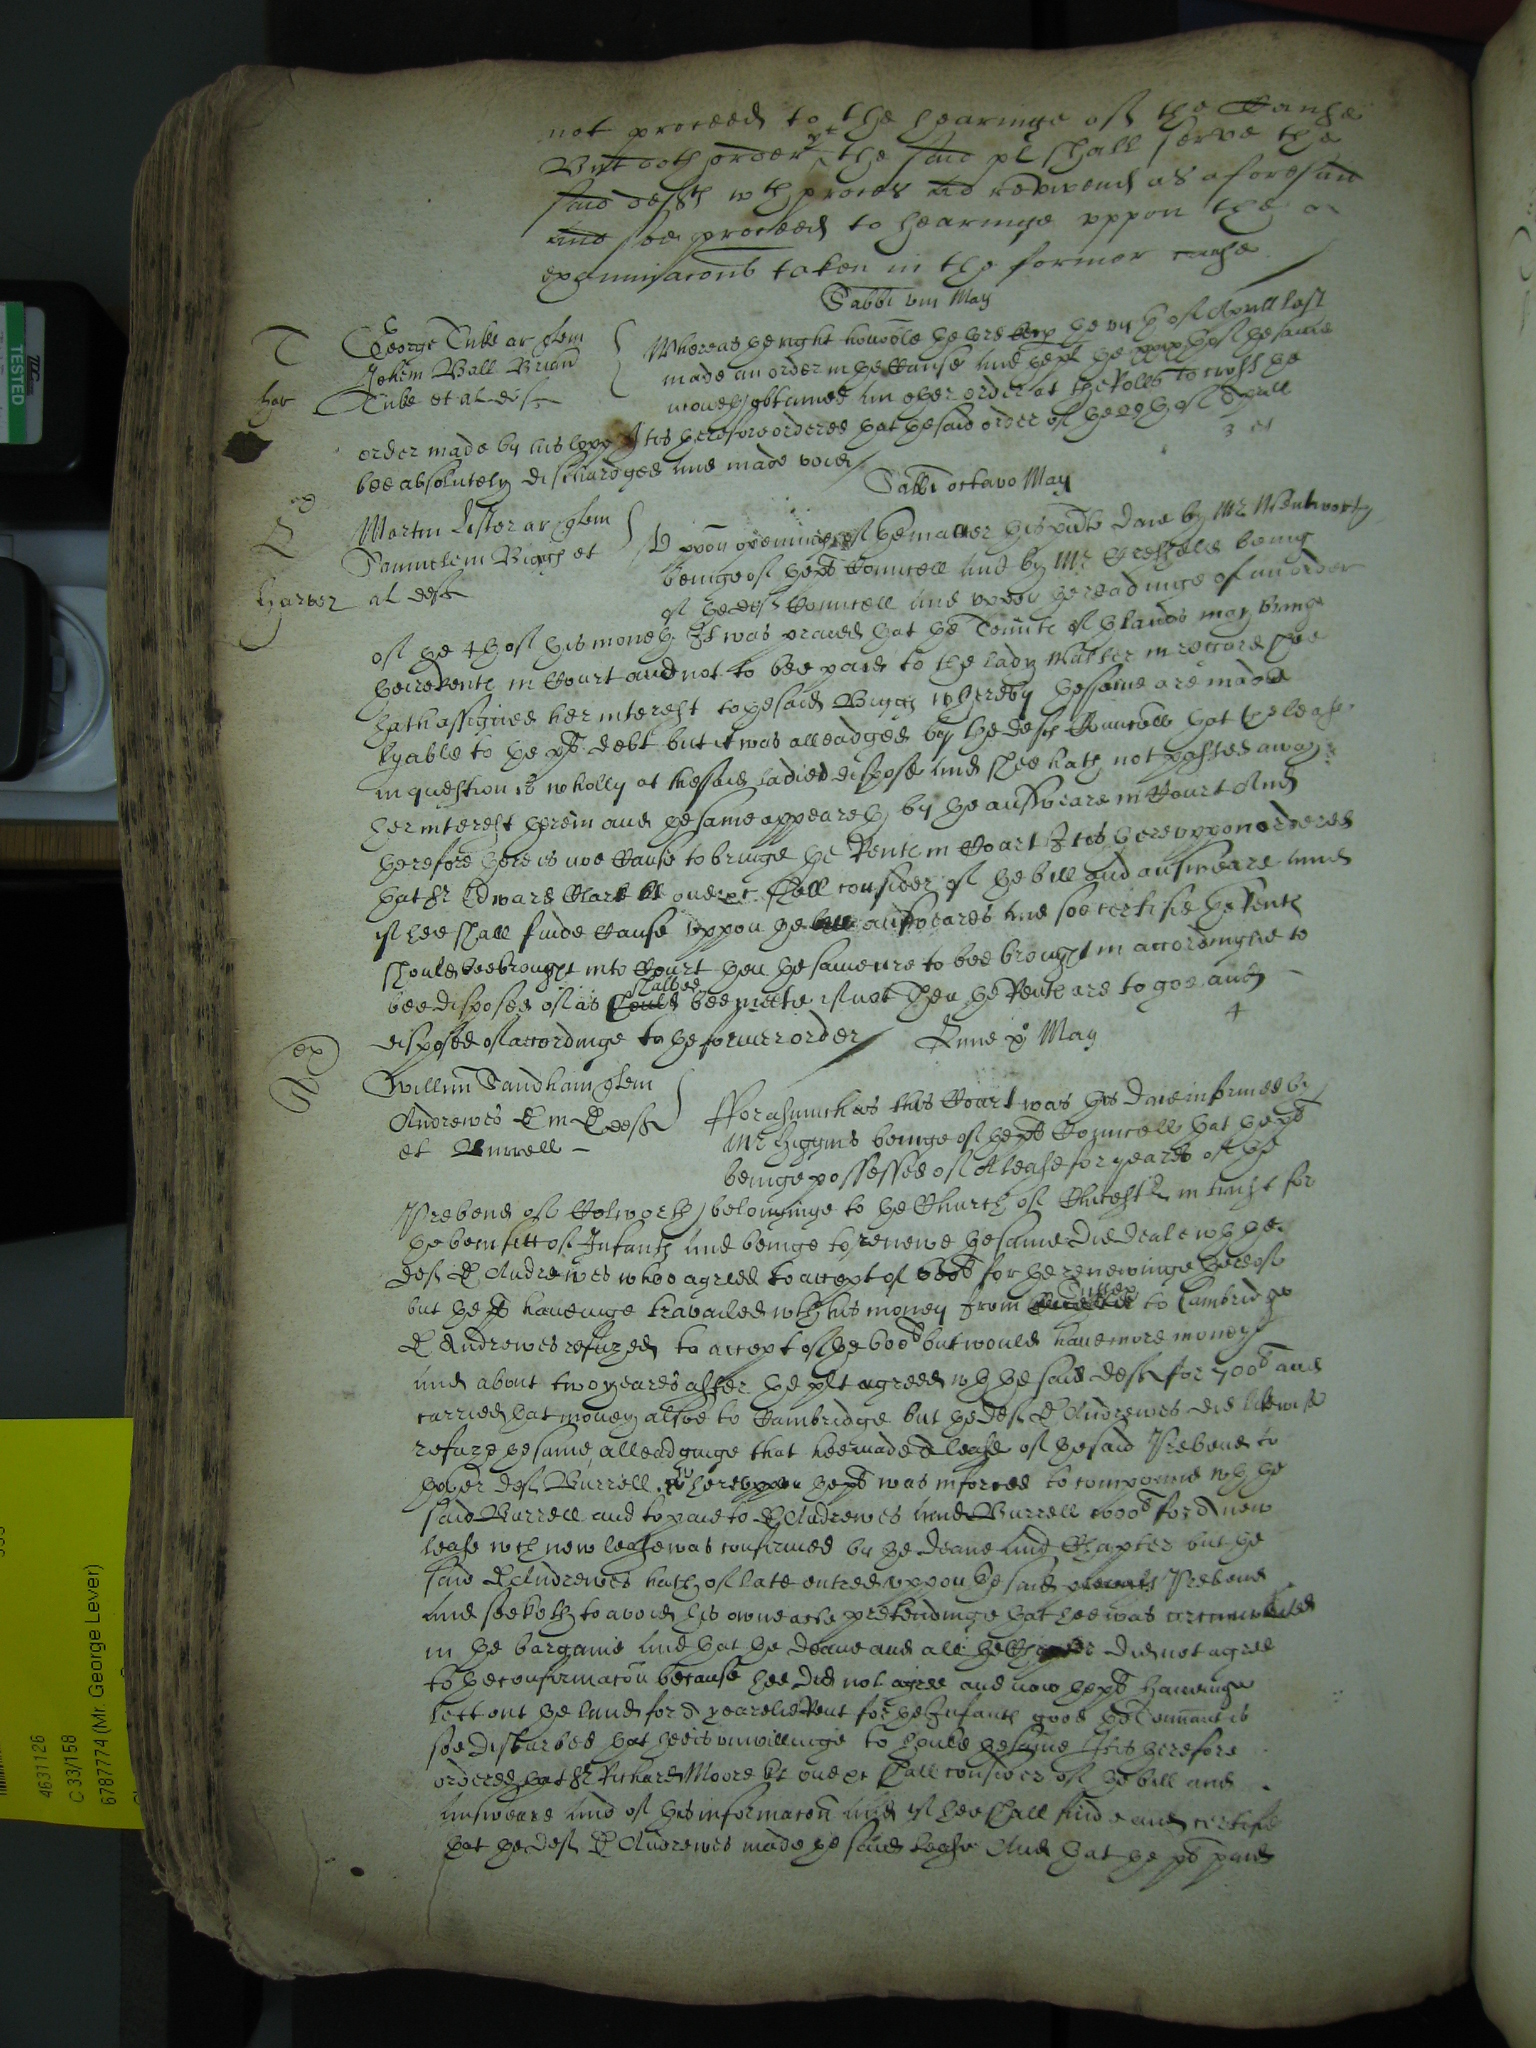 not proceed to the hearinge of the Cause
But doth order yt the said pl shall serve the
said defts wth proces ad rediviend as aforesaid
and soe proceed to hearinge uppon the
examinacons taken in the former cause
Sabbi viii May
George Tuke ar quem
Johem Ball Brian
Tuke et al def
Whereas the right honoble the lore keep the vijth of Aprill last
made an order in the Cause and the pl the xxixth of the same
moneth obtained an other order at the Rolls to crosse the
order made by his lopp It is therefore ordered that the said order of the 29th of Aprill
bee absolutely discharged and made void
T
har
3 et
Sabbi octavo May
Martin Lister ar quem
Samuelem Bigge et
al defts
Upon openinge of the matter this pnte daie by Mr Wentworth
beinge of the pls Councell and by Mr Gresheld being
of the defts Councell and uppon the readinge of an order
of the 4th of this moneth It was praied that the Tennte of the lands may bringe
their Rente in Court and not to bee paid to the lady in regard shee
hath assigned her interest to the said Bigge whereby the same are made
lyable to the pls debt but it was alleadged by the defts Councell that the lease
in question is wholly at the said ladies dispose and shee hath not passed away
her interest therein and the same appeareth by the answeare in Court And
therefore there is noe Cause to bringe the Rente in Court It is thereuppon ordered
that Sr Edward Clark kt one et shall consider of the bill and answeare and
if hee shall finde Cause uppon the answeares and soe certifie the Rente
should bee brought into Court then the same are to bee brought in accordinglie to
bee disposed of as shalbee meete if not then the Rente are to goe and
disposed of accordinge to the former order
Harvey
4
Lune xo May
Willim Sandham quem
Andrewes
et Burrell
Forasmuch as this Court was this daie informed by
Mr Higgins beinge of the pls Councell that the pl
beinge possessed of A lease for yeares of the
Prebend of Colworth belonginge to the Church of Chichestr in trust for
the benefitt of Infants and beinge to renewe the same did deale wth the
def D Andrewes whoe agreed to accept of 600l for the renewinge thereof
but the pl haveinge travailed wth his money from Sussex to Cambridge
D Andrewes refuzed to accept of the 600l but would have more money
and about two yeares after the plt agreed wth the said deft for 700l and
carried that money alsoe to Cambridge but the def D Andrewes did likewise
refuze the same alleadginge that hee made A lease of the said Prebend to
thother def Burrell whereuppon the pl was inforced to compound wth the
said Burrell and to paie to D Andrewes and Burrell 1000l for A new
lease wch new lease was confirmed by the Deane and Chapter but the
said D Andrewes hath of late entred uppon the said Prebend
and seeketh to avoid his owne acte pretendinge that hee was circumvented
in the bargaine and that the Deane and all the Chapter did not agree
to the confirmacon because hee did not agree and now the pl haveinge
lett out the land for A yearelie Rent for the Infants good the Tennant is
soe disturbed that hee is unwillinge to houlde the same It is therefore
ordered that Sr Richard Moore kt one et shall consider of the bill and
answeare and of this informacon and if hee shall finde and certifie
that the def D Andrewes made the said lease And that the pl paid
TESTED
4631126
C 33/158
6787774 (Mr. George Lever)